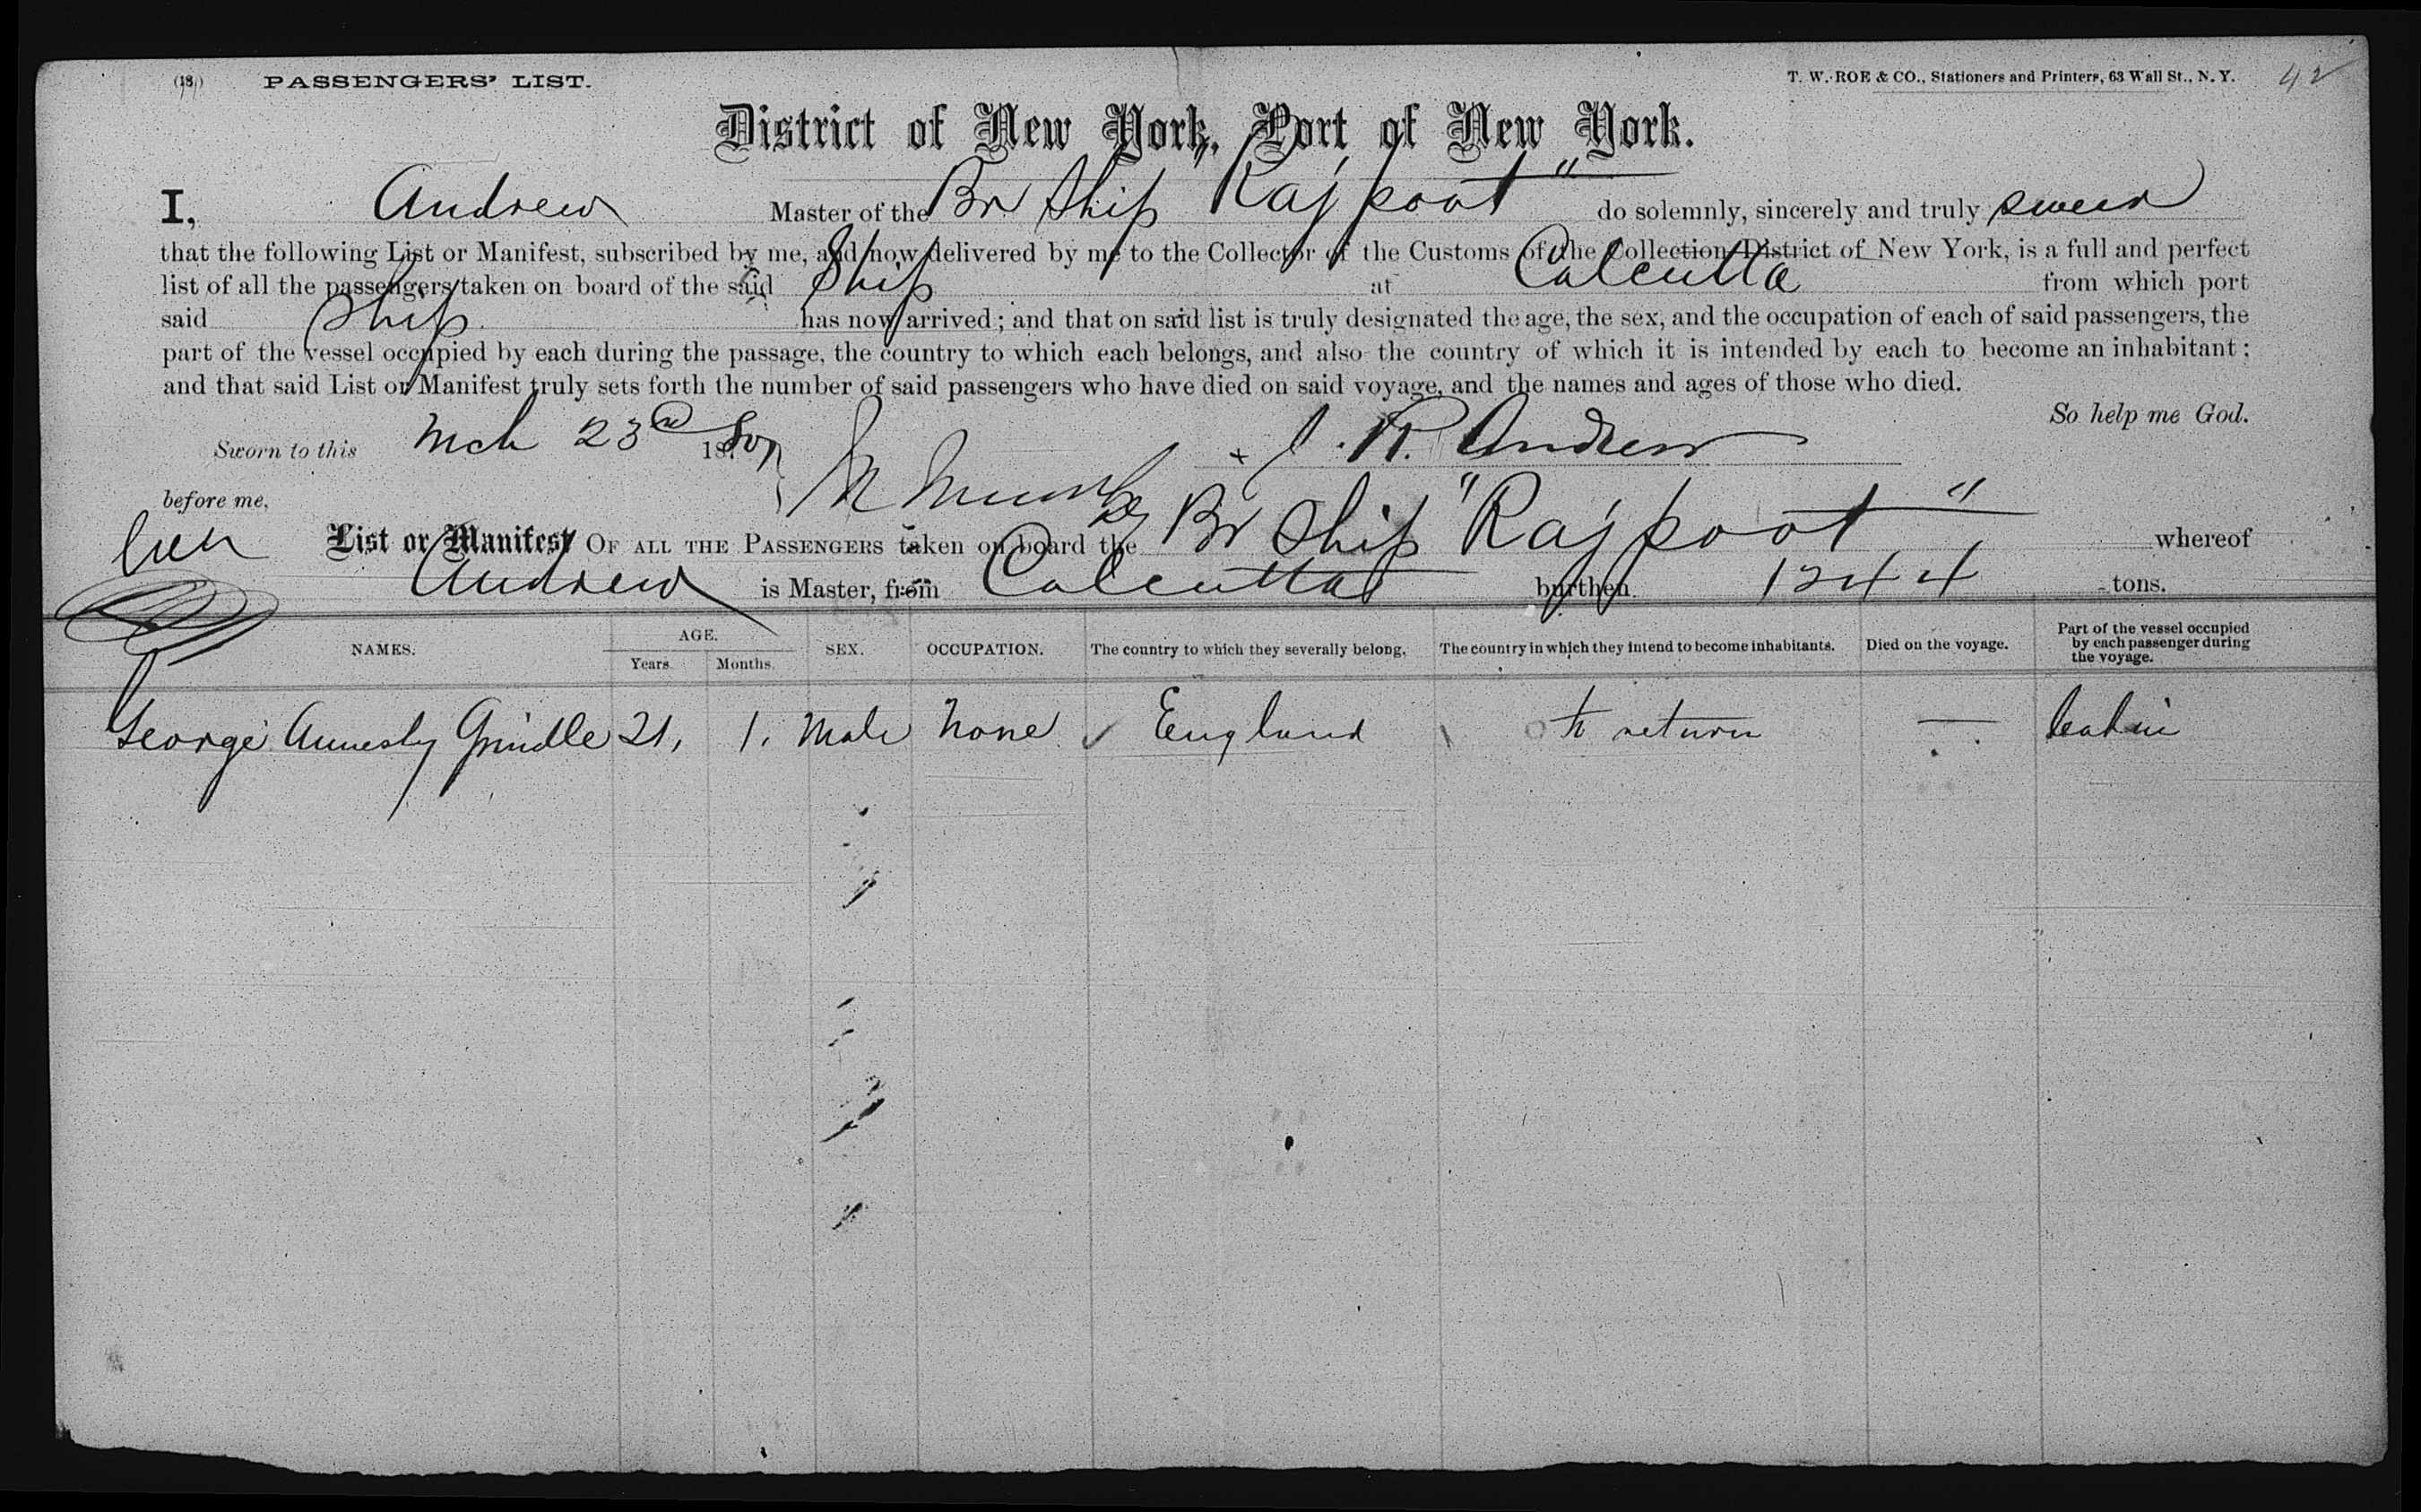 (18) PASSENGERS' LIST. T. W. ROE & CO., Stationers and Printers, 63 Wall St., N. Y. 42
District of New York, Port of New York.
I, Andrew Master of the Br Ship "Rajpoot" do solemnly, sincerely and truly swear
that the following List or Manifest, subscribed by me, and now delivered by me to the Collector of the Customs of the Collection District of New York, is a full and perfect
list of all the passengers taken on board of the said Ship at Calcutta from which port
said Ship has now arrived; and that on said list is truly designated the age, the sex, and the occupation of each of said passengers, the
part of the vessel occupied by each during the passage, the country to which each belongs, and also the country of which it is intended by each to become an inhabitant;
and that said List or Manifest truly sets forth the number of said passengers who have died on said voyage, and the names and ages of those who died.
So help me God.
Sworn to this Mch 23rd 18 R. Andrew
before me,
List or Manifest OF ALL THE PASSENGERS taken on board the Br Ship "Rajpoot" whereof
Andrew is Master, from Calcutta burthen 1244 tons.
NAMES. AGE. Years. Months. SEX. OCCUPATION. The country to which they severally belong. The country in which they intend to become inhabitants. Died on the voyage. Part of the vessel occupied by each passenger during the voyage.
George Annesly Grindle 21, 1. Male None England to return — Cabin